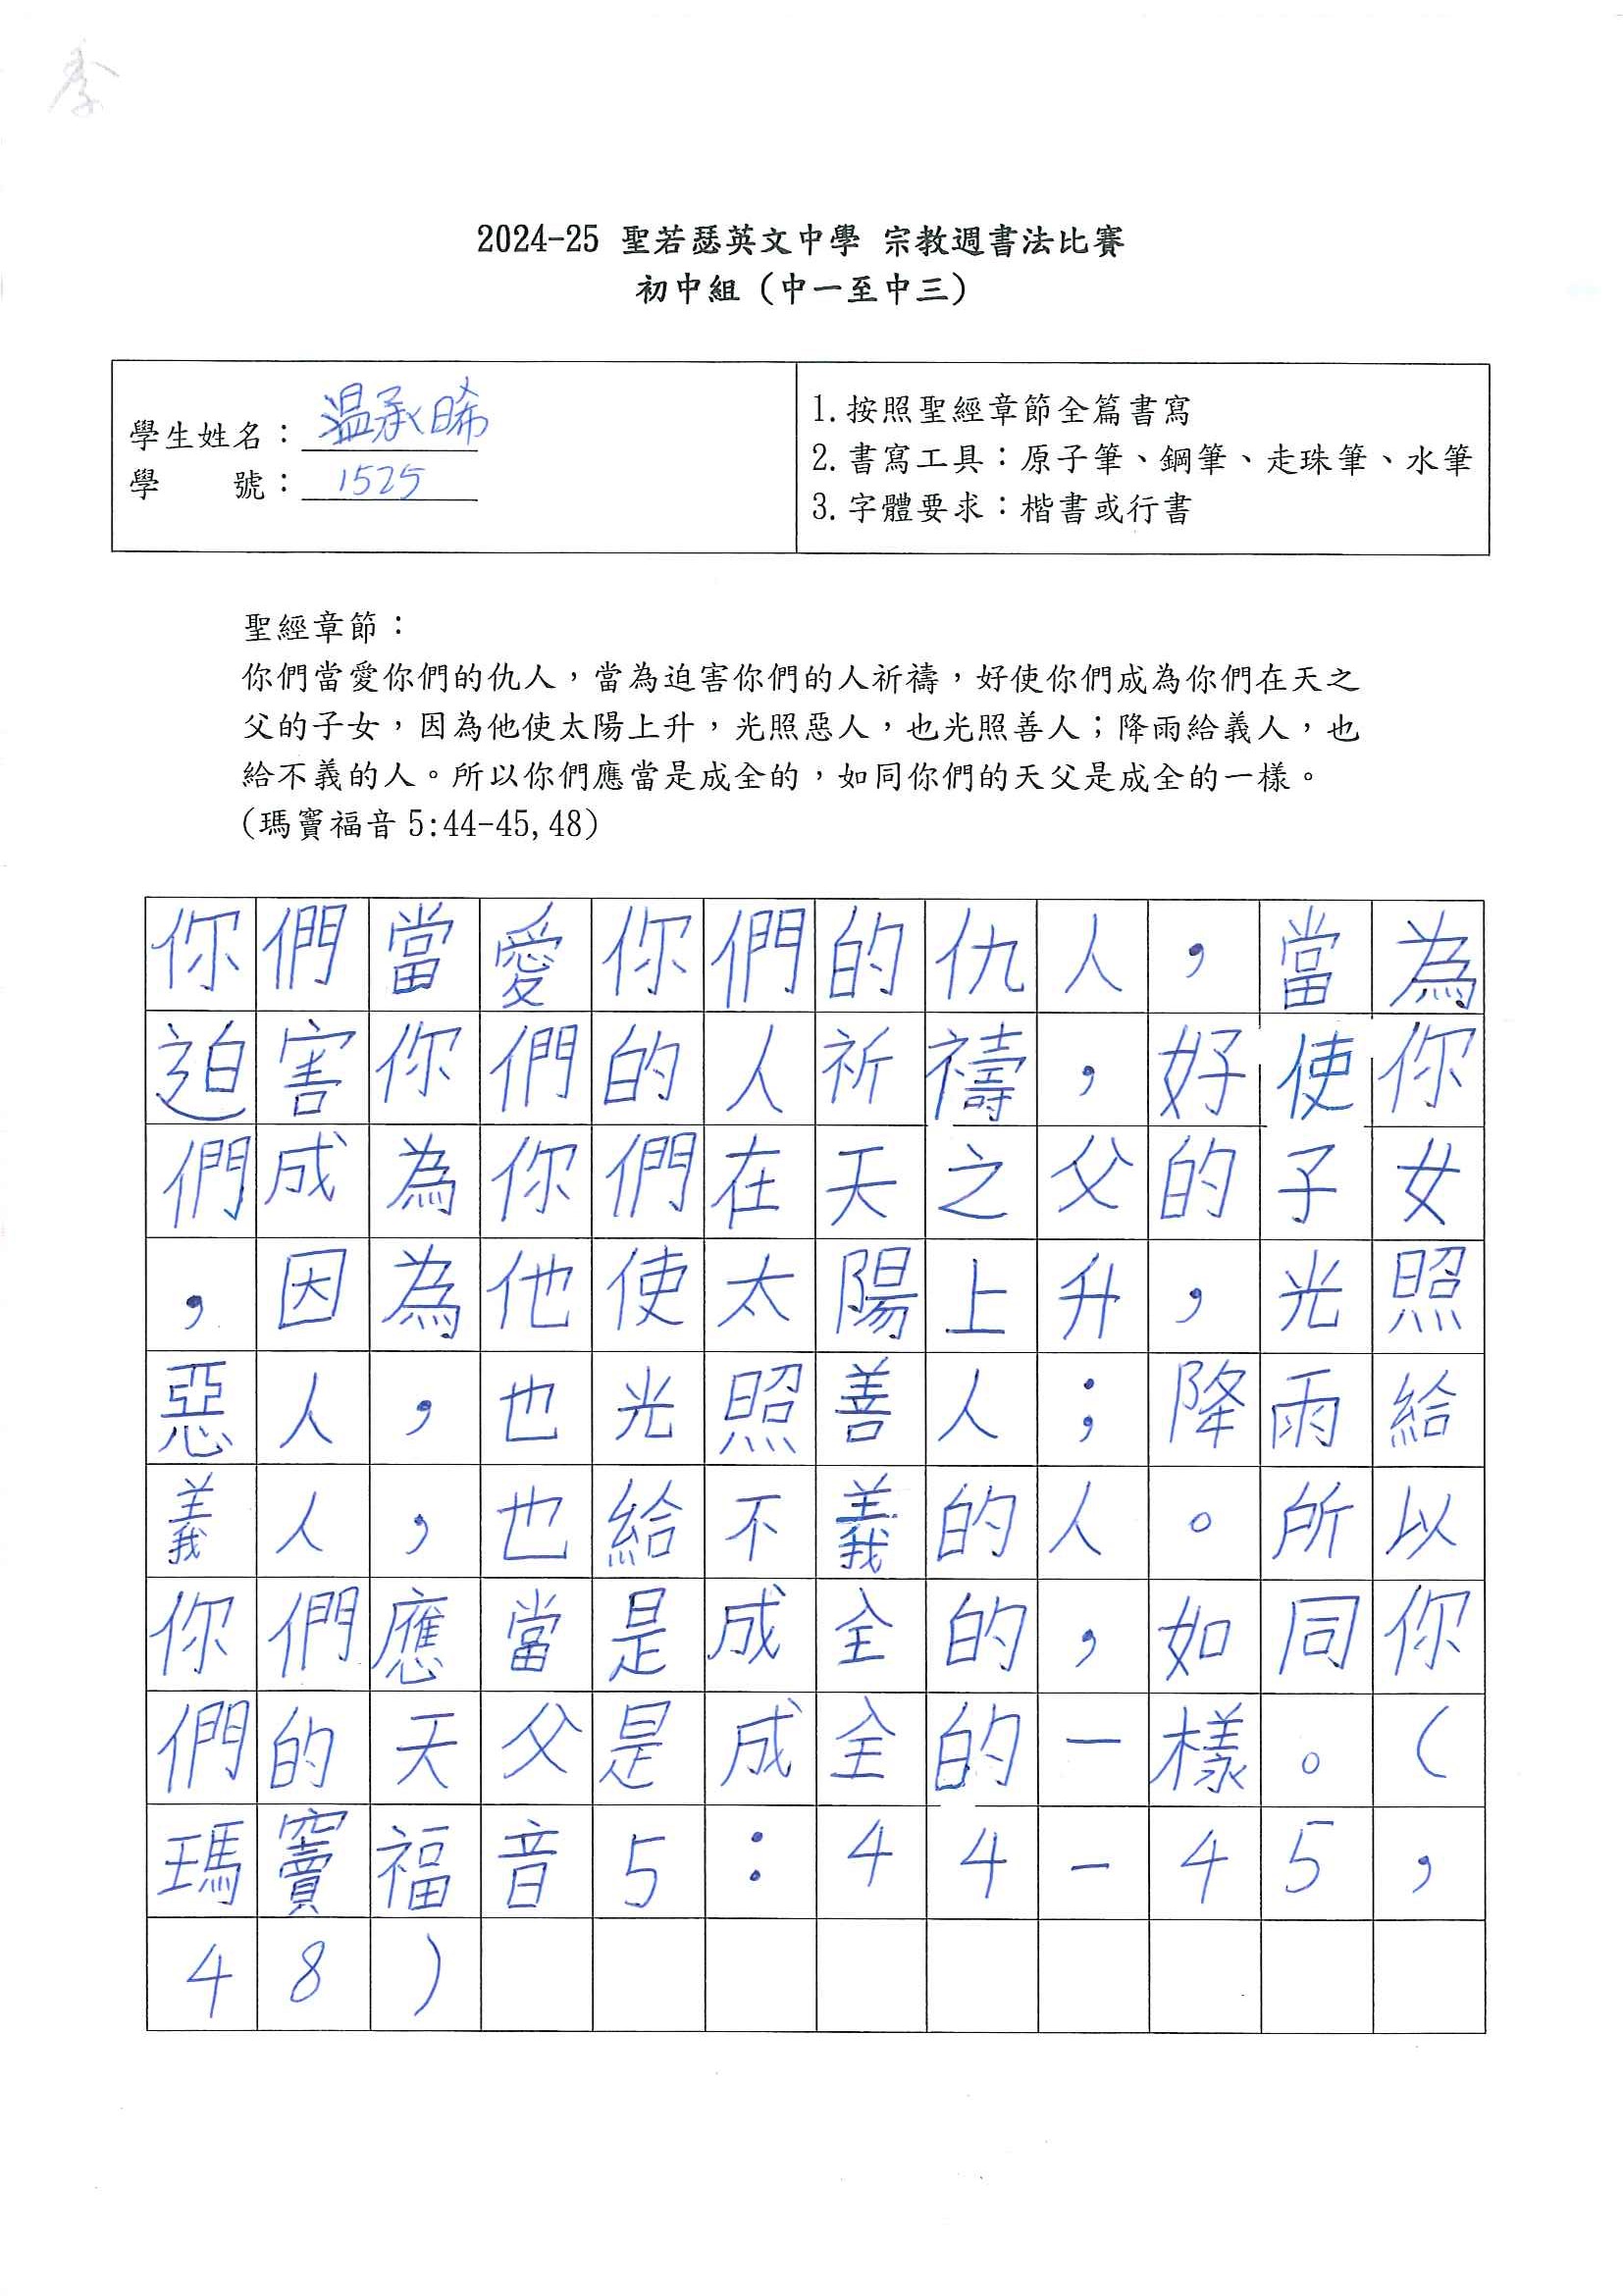 2024-25 聖若瑟英文中學 宗教週書法比賽
初中組(中一至中三)
學生姓名：温承晞
學　號：1525
1.按照聖經章節全篇書寫
2.書寫工具：原子筆、鋼筆、走珠筆、水筆
3.字體要求：楷書或行書
聖經章節：
你們當愛你們的仇人，當為迫害你們的人祈禱，好使你們成為你們在天之
父的子女，因為他使太陽上升，光照惡人，也光照善人；降雨給義人，也
給不義的人。所以你們應當是成全的，如同你們的天父是成全的一樣。
(瑪竇福音 5:44-45,48)
你們當愛你們的仇人，當為
迫害你們的人祈禱，好使你
們成為你們在天之父的子女
，因為他使太陽上升，光照
惡人，也光照善人；降雨給
義人，也給不義的人。所以
你們應當是成全的，如同你
們的天父是成全的一樣。(
瑪竇福音5:44-45,
48)